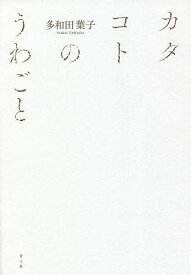 カタ
コト
の
うわごと
多和田葉子
YOKO TAWADA
青土社